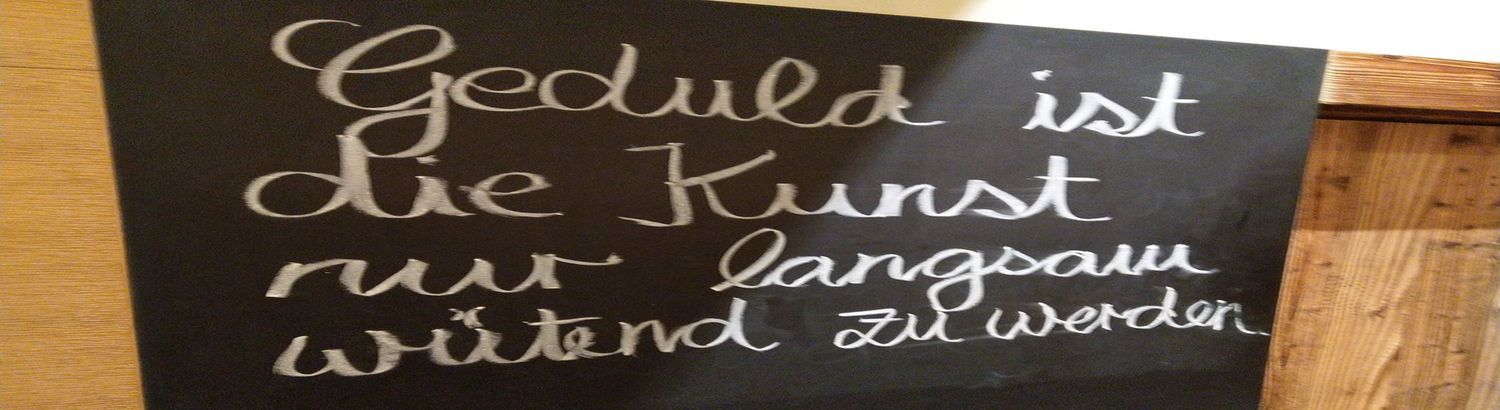 Geduld ist
die Kunst
nur langsam
wütend zu werden.